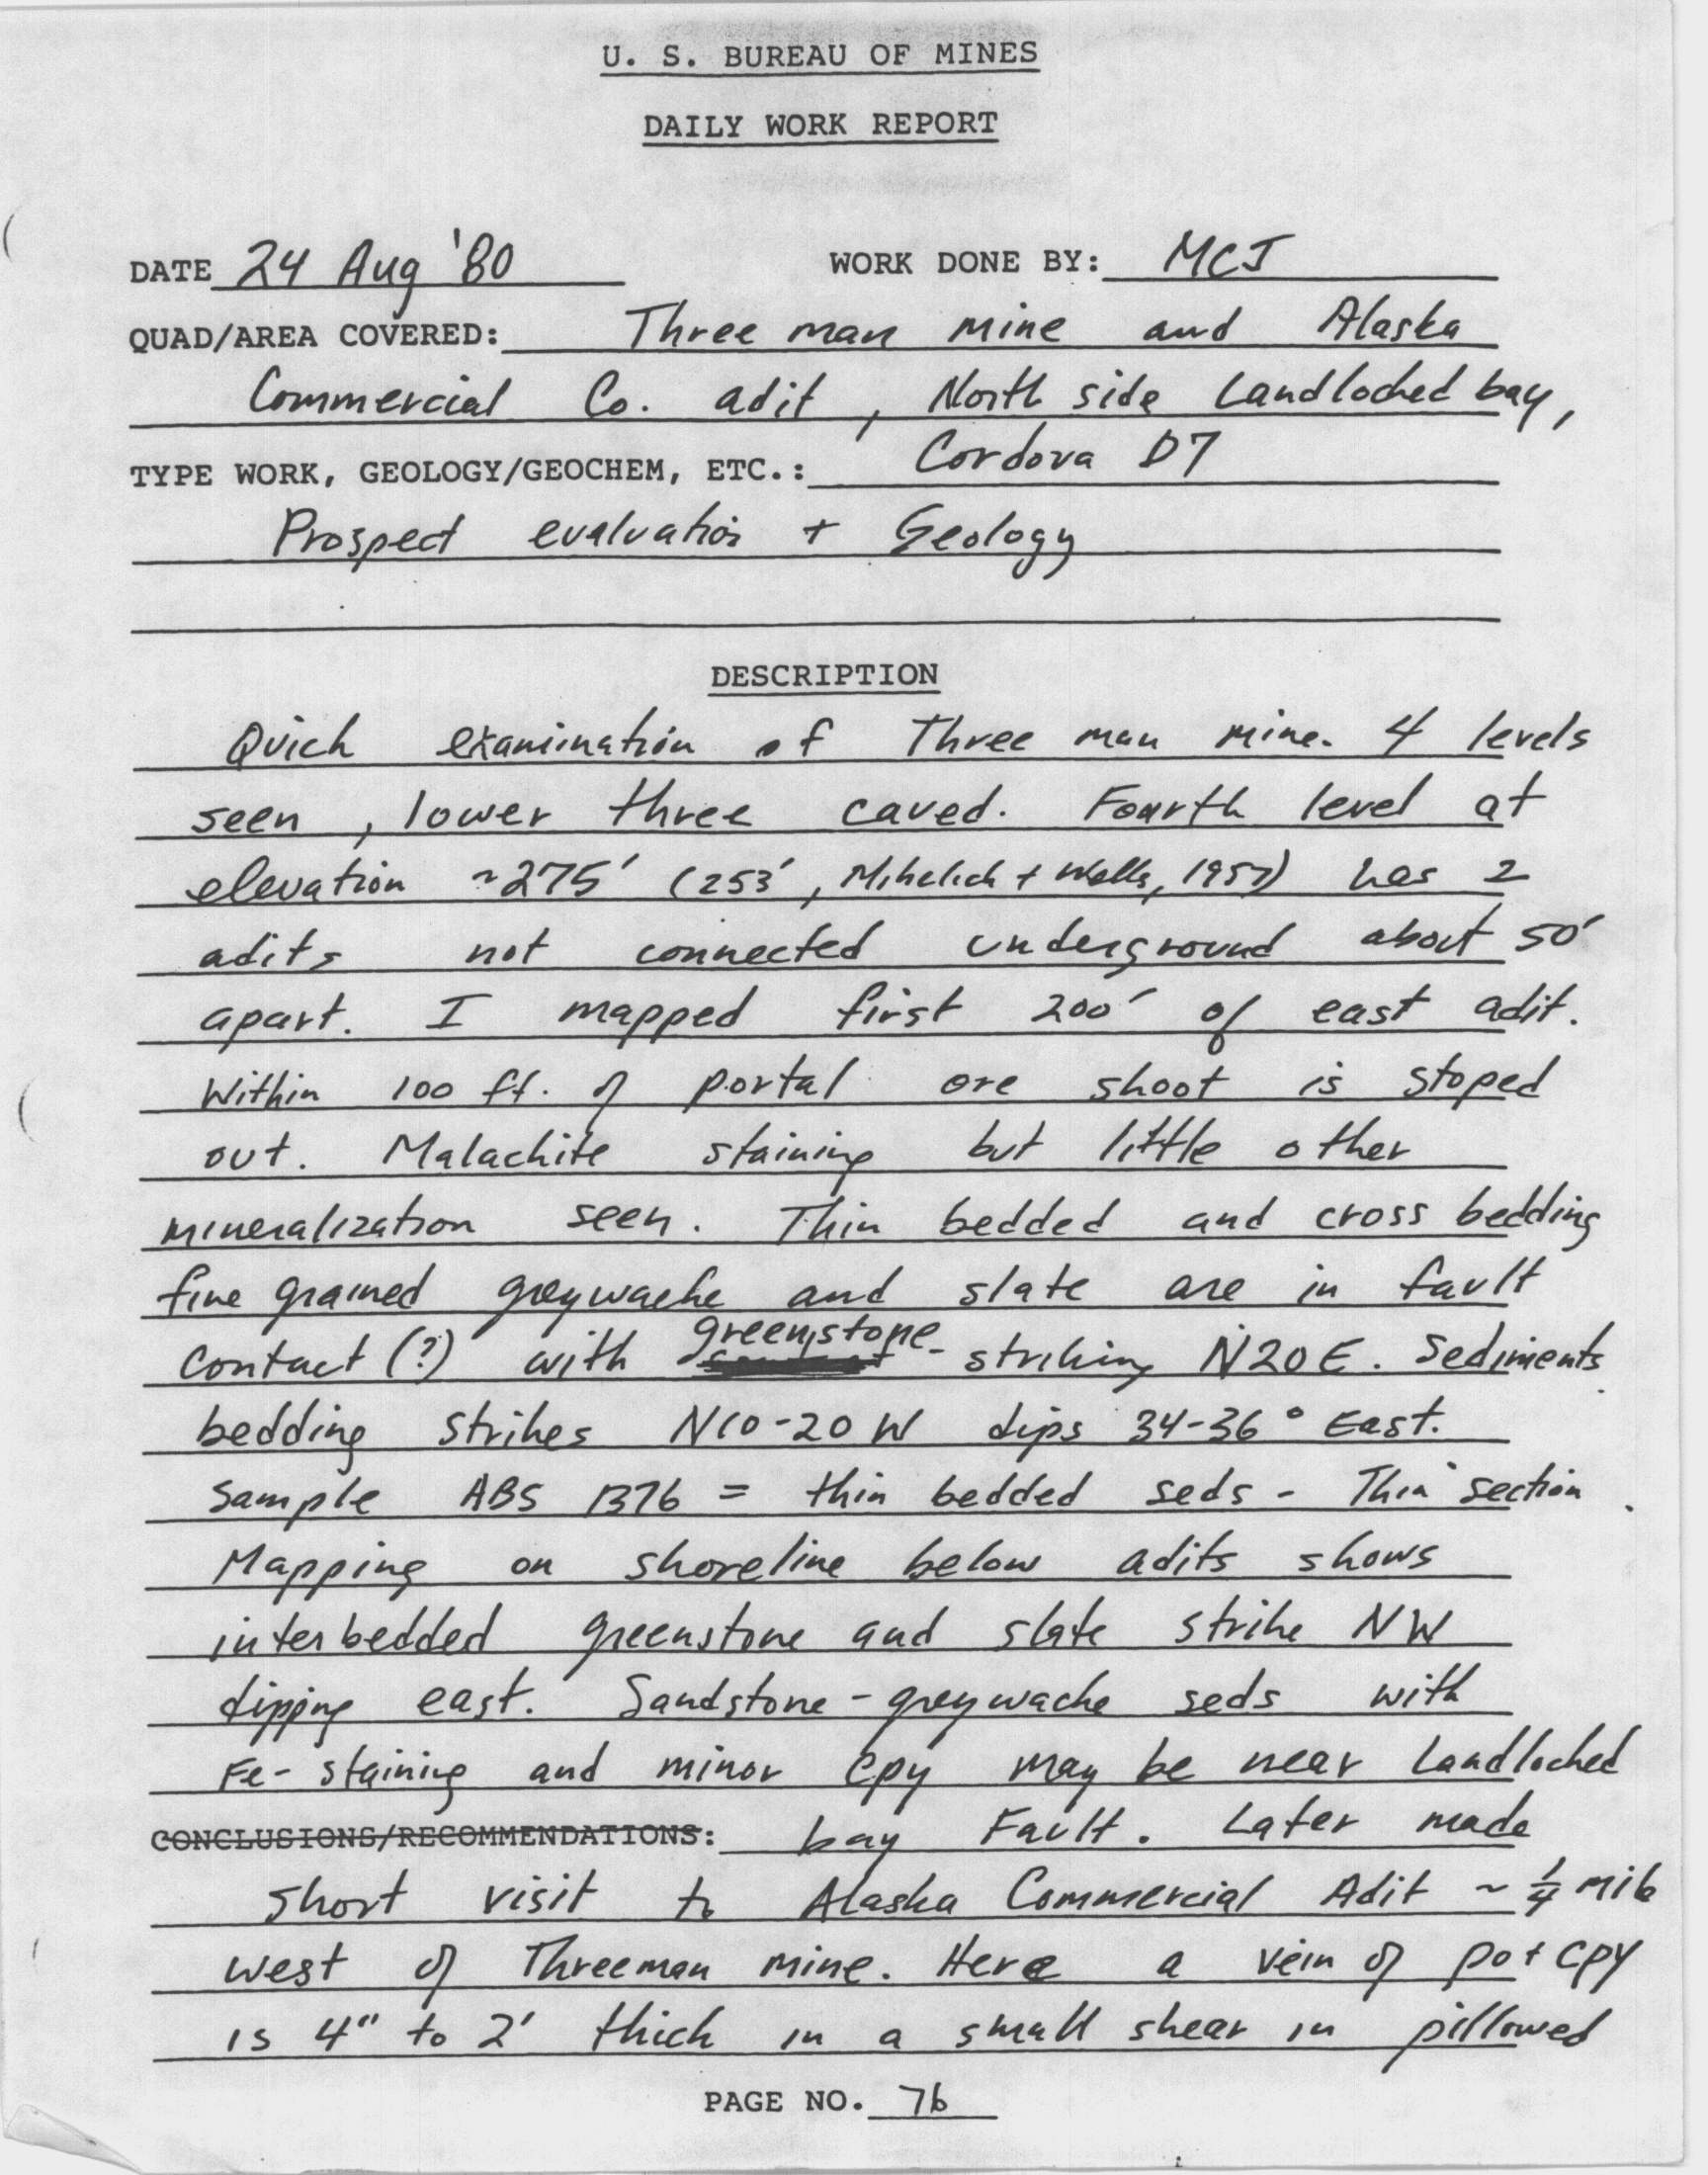 U. S. BUREAU OF MINES
DAILY WORK REPORT
DATE 24 Aug '80 WORK DONE BY: MCJ
QUAD/AREA COVERED: Three man mine and Alaska
Commercial Co. adit, North side Landlocked bay,
TYPE WORK, GEOLOGY/GEOCHEM, ETC.: Cordova D7
Prospect evaluation + Geology
DESCRIPTION
Quick examination of Three man mine. 4 levels
seen, lower three caved. Fourth level at
elevation ~275' (253', Mihelich + Wells, 1957) has 2
adits not connected underground about 50'
apart. I mapped first 200' of east adit.
Within 100 ft. of portal ore shoot is stoped
out. Malachite staining but little other
mineralization seen. Thin bedded and cross bedding
fine grained greywacke and slate are in fault
contact (?) with greenstone striking N20E. Sediments
bedding strikes N10-20W dips 34-36° East.
Sample ABS 1376 = thin bedded seds - Thin section.
Mapping on shoreline below adits shows
interbedded greenstone and slate strike NW
dipping east. Sandstone-greywacke seds with
Fe-staining and minor cpy may be near Landlocked
CONCLUSIONS/RECOMMENDATIONS: bay Fault. Later made
short visit to Alaska Commercial Adit ~ 1/4 mile
west of Threeman mine. Here a vein of po + cpy
is 4" to 2' thick in a small shear in pillowed
PAGE NO. 76